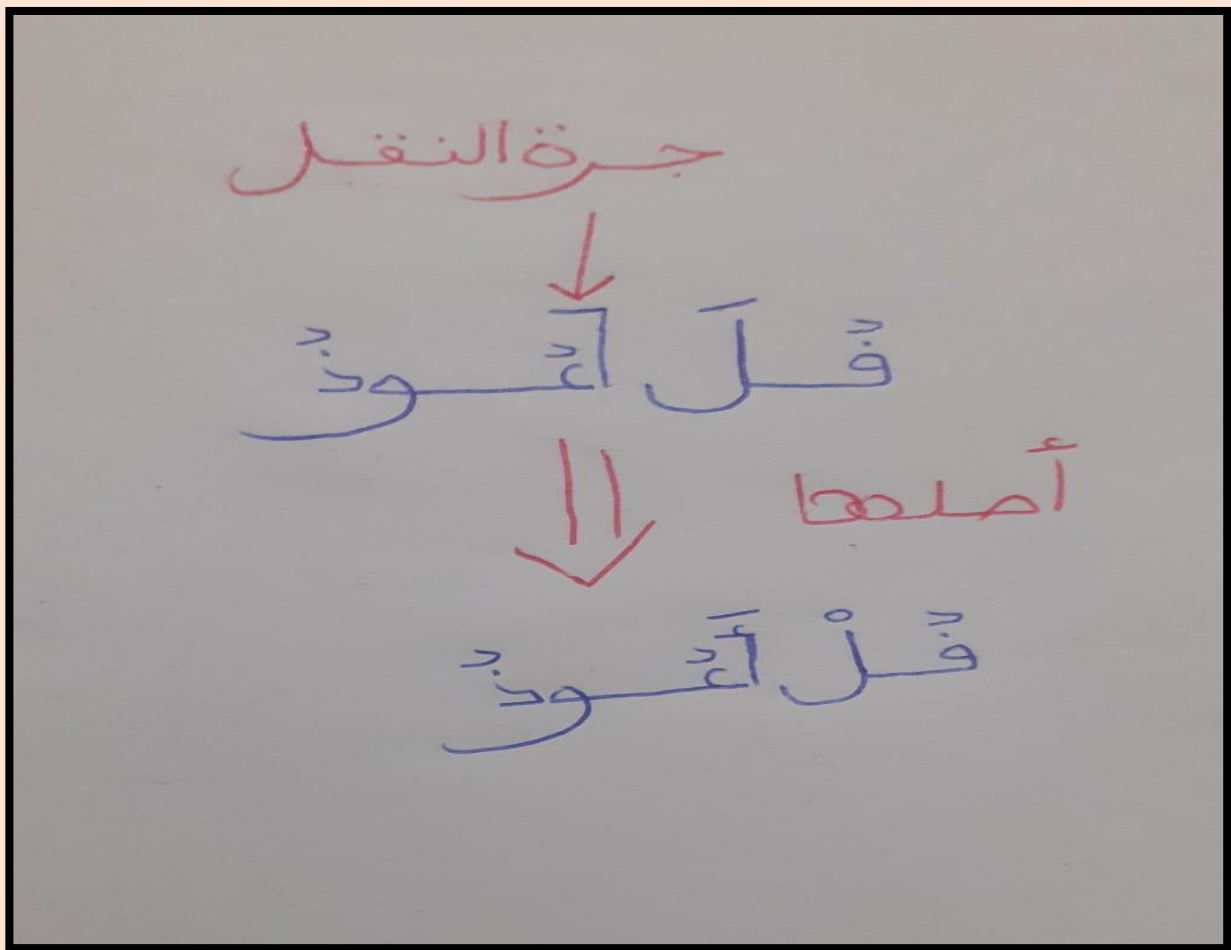 جرة النقل
قُلَ اَعُوذُ
أصلها
قُلْ أَعُوذُ